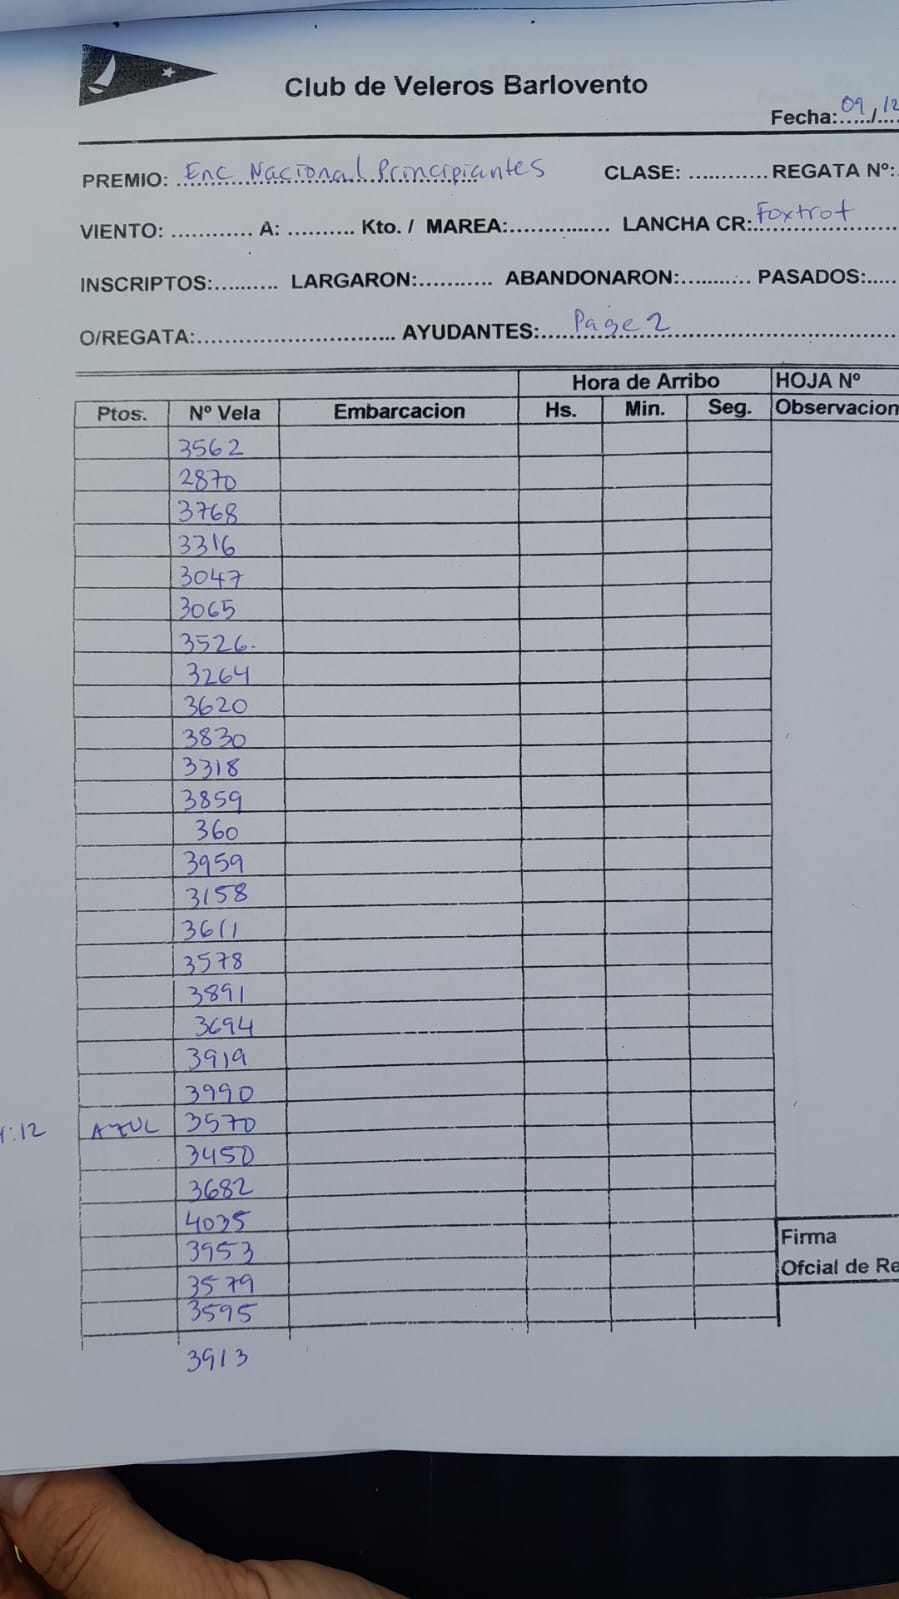 Club de Veleros Barlovento
Fecha: 09/12
PREMIO: Enc Nacional Principiantes CLASE: ............ REGATA Nº:
VIENTO: ............ A: .......... Kto. / MAREA:............... LANCHA CR: Foxtrot
INSCRIPTOS:.......... LARGARON:........... ABANDONARON:........... PASADOS:.....
O/REGATA:.............................. AYUDANTES: Page 2
Hora de Arribo HOJA Nº
Ptos. Nº Vela Embarcacion Hs. Min. Seg. Observacion
3562
2870
3768
3316
3047
3065
3526-
3264
3620
3830
3318
3859
360
3959
3158
3611
3578
3891
3694
3919
3990
:12 AZUL 3570
3450
3682
4035
3953
3579
3595
3913
Firma
Ofcial de Re